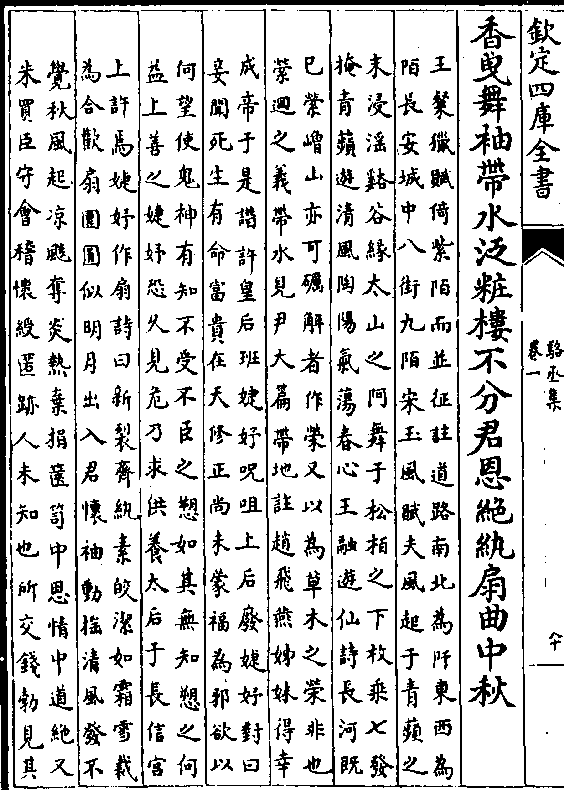 欽定四庫全書
駱丞集
卷一
六十
香曳舞袖帶水泛粧樓不分君恩絶紈扇曲中秋
王粲獵賦倚紫陌而並征註道路南北為阡東西為
陌長安城中八街九陌宋玉風賦夫風起于青蘋之
末浸滛谿谷緣太山之阿舞于松柏之下枚乘七發
掩青蘋遊清風陶陽氣蕩春心王融遊仙詩長河既
已縈嶒山亦可礪解者作榮又以為草木之榮非也
縈迴之義帶水見尹大篇帶地註趙飛燕姊妹得幸
成帝于是譖許皇后班婕妤呪咀上后廢婕妤對曰
妾聞死生有命富貴在天修正尚未蒙福為邪欲以
何望使鬼神有知不受不臣之愬如其無知愬之何
益上善之婕妤恐久見危乃求供養太后于長信宮
上許焉婕妤作扇詩曰新裂齊紈素皎潔如霜雪裁
為合歡扇團圓似明月出入君懷袖動揺清風發不
覺秋風起凉飈奪炎熱棄捐篋笥中恩情中道絶又
朱買臣守會稽懷綬匿跡人未知也所交錢勃見其